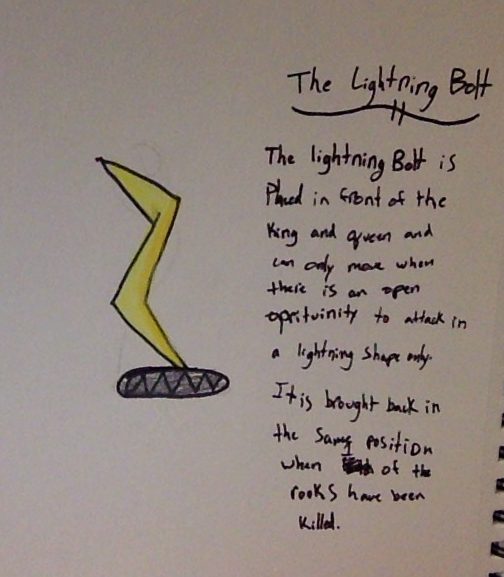 The Lightning Bolt
The lightning Bolt is
Placed in front of the
King and queen and
can only move when
there is an open
oprituinity to attack in
a lightning shape only.
It is brought back in
the same position
when 1 of the
rooks have been
killed.